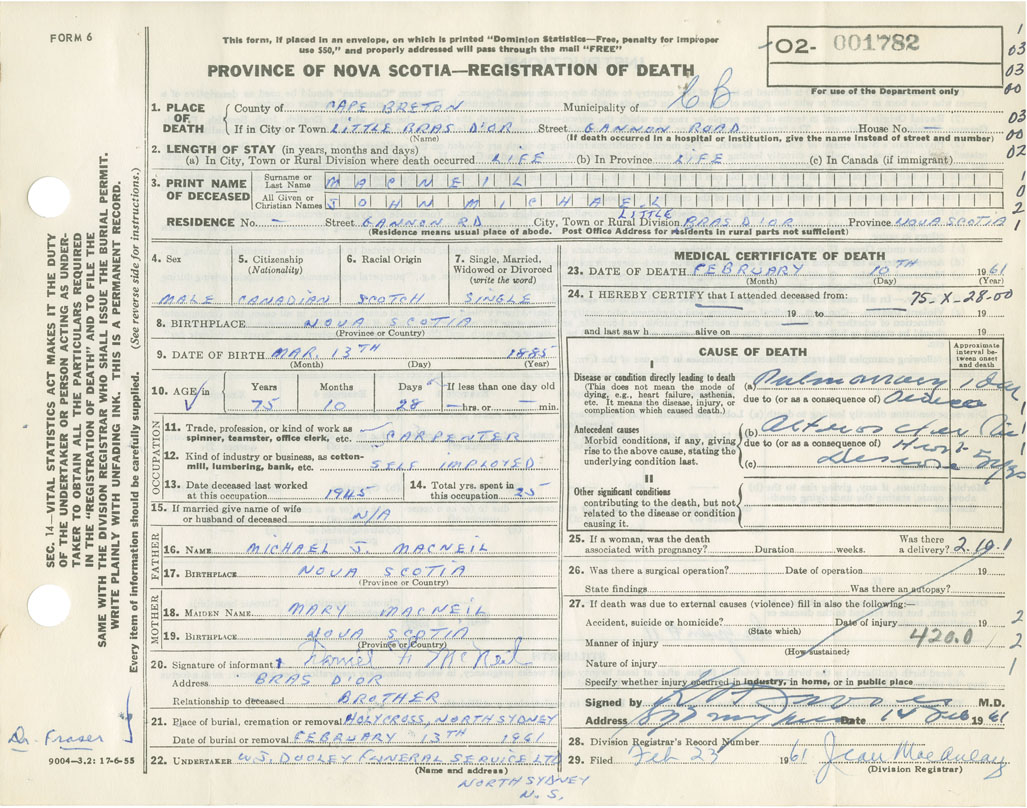 FORM 6
This form, if placed in an envelope, on which is printed "Dominion Statistics—Free, penalty for improper
use $50," and properly addressed will pass through the mail "FREE"
O2- 001782
PROVINCE OF NOVA SCOTIA—REGISTRATION OF DEATH
For use of the Department only
1. PLACE OF DEATH County of CAPE BRETON Municipality of C B
If in City or Town LITTLE BRAS D'OR Street GANNON ROAD House No. —
(Name) (If death occurred in a hospital or institution, give the name instead of street and number)
2. LENGTH OF STAY (in years, months and days)
(a) In City, Town or Rural Division where death occurred LIFE (b) In Province LIFE (c) In Canada (if immigrant)
3. PRINT NAME OF DECEASED Surname or Last Name MACNEIL
All Given or Christian Names JOHN MICHAEL
RESIDENCE No. — Street GANNON RD City, Town or Rural Division LITTLE BRAS D'OR Province NOVA SCOTIA
(Residence means usual place of abode. Post Office Address for residents in rural parts not sufficient)
4. Sex 5. Citizenship (Nationality) 6. Racial Origin 7. Single, Married, Widowed or Divorced (write the word)
MALE CANADIAN SCOTCH SINGLE
8. BIRTHPLACE NOVA SCOTIA
(Province or Country)
9. DATE OF BIRTH MAR. 13TH 1885
(Month) (Day) (Year)
10. AGE in Years Months Days If less than one day old
75 10 28 — hrs. or — min.
OCCUPATION
11. Trade, profession, or kind of work as
spinner, teamster, office clerk, etc. CARPENTER
12. Kind of industry or business, as cotton-
mill, lumbering, bank, etc. SELF IMPLOYED
13. Date deceased last worked
at this occupation 1945
14. Total yrs. spent in
this occupation 25
15. If married give name of wife
or husband of deceased N/A
FATHER
16. NAME MICHAEL J. MACNEIL
17. BIRTHPLACE NOVA SCOTIA
(Province or Country)
MOTHER
18. MAIDEN NAME MARY MACNEIL
19. BIRTHPLACE NOVA SCOTIA
(Province or Country)
20. Signature of informant McNeil
Address BRAS D'OR
Relationship to deceased BROTHER
21. Place of burial, cremation or removal HOLYCROSS, NORTH SYDNEY
Date of burial or removal FEBRUARY 13TH 1961
22. UNDERTAKER W.J. DOOLEY FUNERAL SERVICE LTD
(Name and address)
NORTH SYDNEY
N.S.
MEDICAL CERTIFICATE OF DEATH
23. DATE OF DEATH FEBRUARY 10TH 1961
(Month) (Day) (Year)
24. I HEREBY CERTIFY that I attended deceased from: 75-X-28-00
— 19 — to — 19
and last saw h alive on 19
CAUSE OF DEATH
Approximate interval between onset and death
I
Disease or condition directly leading to death
(This does not mean the mode of
dying, e.g., heart failure, asthenia,
etc. It means the disease, injury, or
complication which caused death.)
(a) Pulmonary 1 day
due to (or as a consequence of)
Antecedent causes
Morbid conditions, if any, giving
rise to the above cause, stating the
underlying condition last.
(b)
due to (or as a consequence of) Heart
(c) Disease
II
Other significant conditions
contributing to the death, but not
related to the disease or condition
causing it.
25. If a woman, was the death
associated with pregnancy? Duration weeks. Was there
a delivery? 2.19.1
26. Was there a surgical operation? Date of operation 19
State findings Was there an autopsy?
27. If death was due to external causes (violence) fill in also the following:—
Accident, suicide or homicide? Date of injury 19
(State which)
Manner of injury 420.0
(How sustained)
Nature of injury
Specify whether injury occurred in industry, in home, or in public place
Signed by M.D.
Address Date 14 Feb 1961
28. Division Registrar's Record Number
29. Filed Feb 23 1961 Jean MacAulay
(Division Registrar)
SEC. 14—VITAL STATISTICS ACT MAKES IT THE DUTY
OF THE UNDERTAKER OR PERSON ACTING AS UNDER-
TAKER TO OBTAIN ALL THE PARTICULARS REQUIRED
IN THE "REGISTRATION OF DEATH" AND TO FILE THE
SAME WITH THE DIVISION REGISTRAR WHO SHALL ISSUE THE BURIAL PERMIT.
WRITE PLAINLY WITH UNFADING INK. THIS IS A PERMANENT RECORD.
Every item of information should be carefully supplied. (See reverse side for instructions.)
Dr. Fraser
9004—3.2: 17-6-55
1
03
03
00
03
00
02
1
0
2
1
1
1
2
2
1